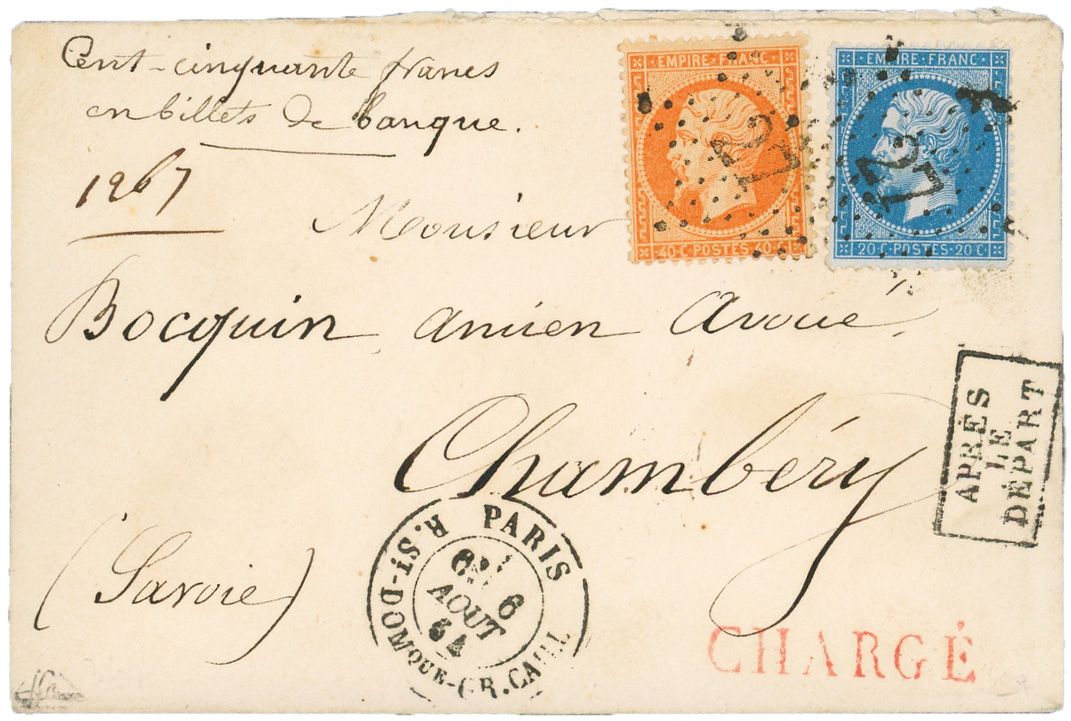 Cent-cinquante francs
en billets de banque.
1267
Monsieur
Bocquin ancien Avoué
Chambéry
(Savoie)
EMPIRE·FRANC
40·C·POSTES·40·C
EMPIRE·FRANC
20·C·POSTES·20·C
APRÉS
LE
DÉPART
PARIS
6
AOUT
64
R. ST-DOMQUE-GR.CAILL
CHARGÉ